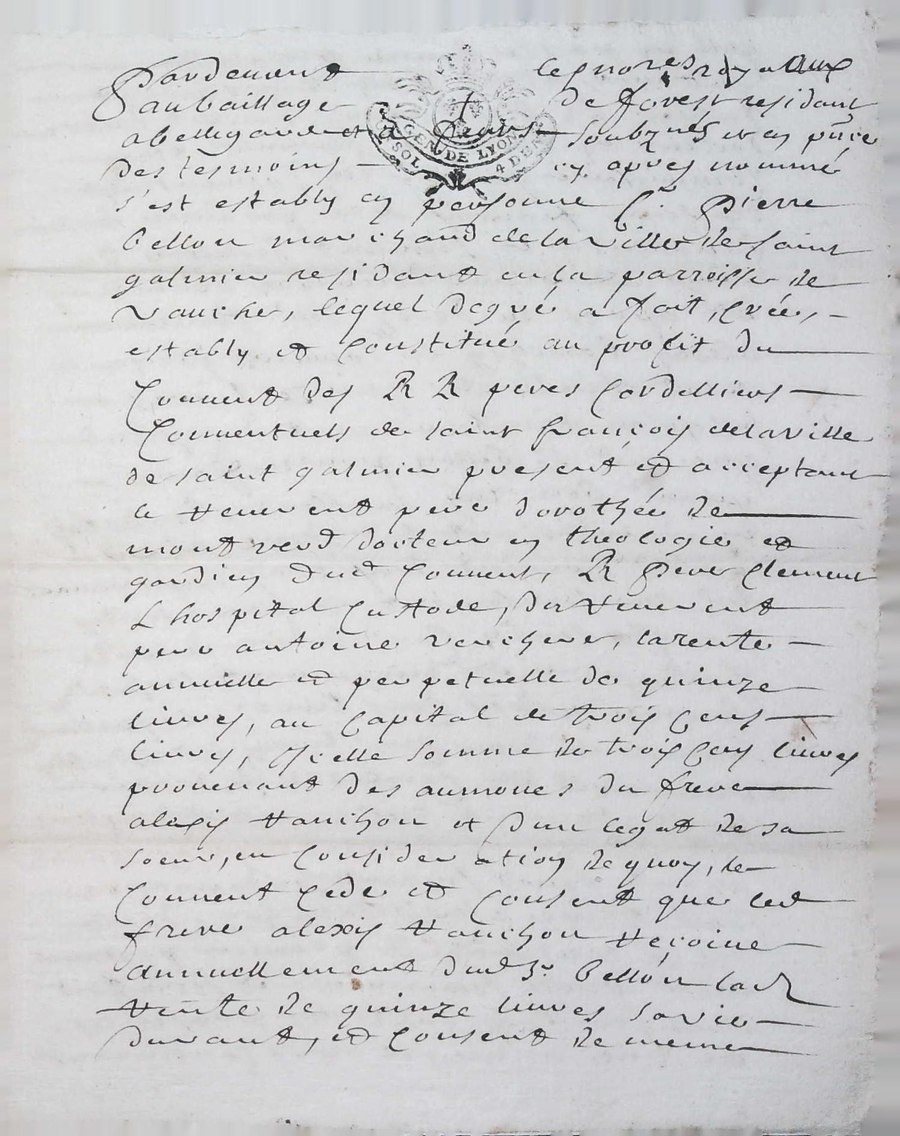 Pardevant les nores royaux
au baillage de forest residant
a bellegarde et a soubznés et en pñce
des tesmoins cy apres nommé
s'est estably en personne sr. pierre
bellon marchand de la ville de saint
galmier residant en la parroisse de
vauche, lequel de gré a fait, créé,
estably et constitué au profit du
Couuent des RR peres Cordelliers
Conuentuels de saint françois de la ville
de saint galmier present et acceptant
le reuerent pere dorothée de
mont verd docteur en theologie et
gardien dud Couuent, R pere Clement
Lhospital Custode, du reuerent
pere antoine verchere, la rente
annuelle et perpetuelle de quinze
liures, au capital de trois cens
liures, Icelle somme de trois cens liures
prouenant des aumones du frere
alexis hauchon et d'un legat de sa
soeur, en consideration de quoy, le
Couuent cede et consent que led
frere alexis hauchon recoiue
annuellement dud sr bellon lad
rente de quinze liures sa vie
durant, et consent de meme
GEN. DE LYON
SOL 4 DEN